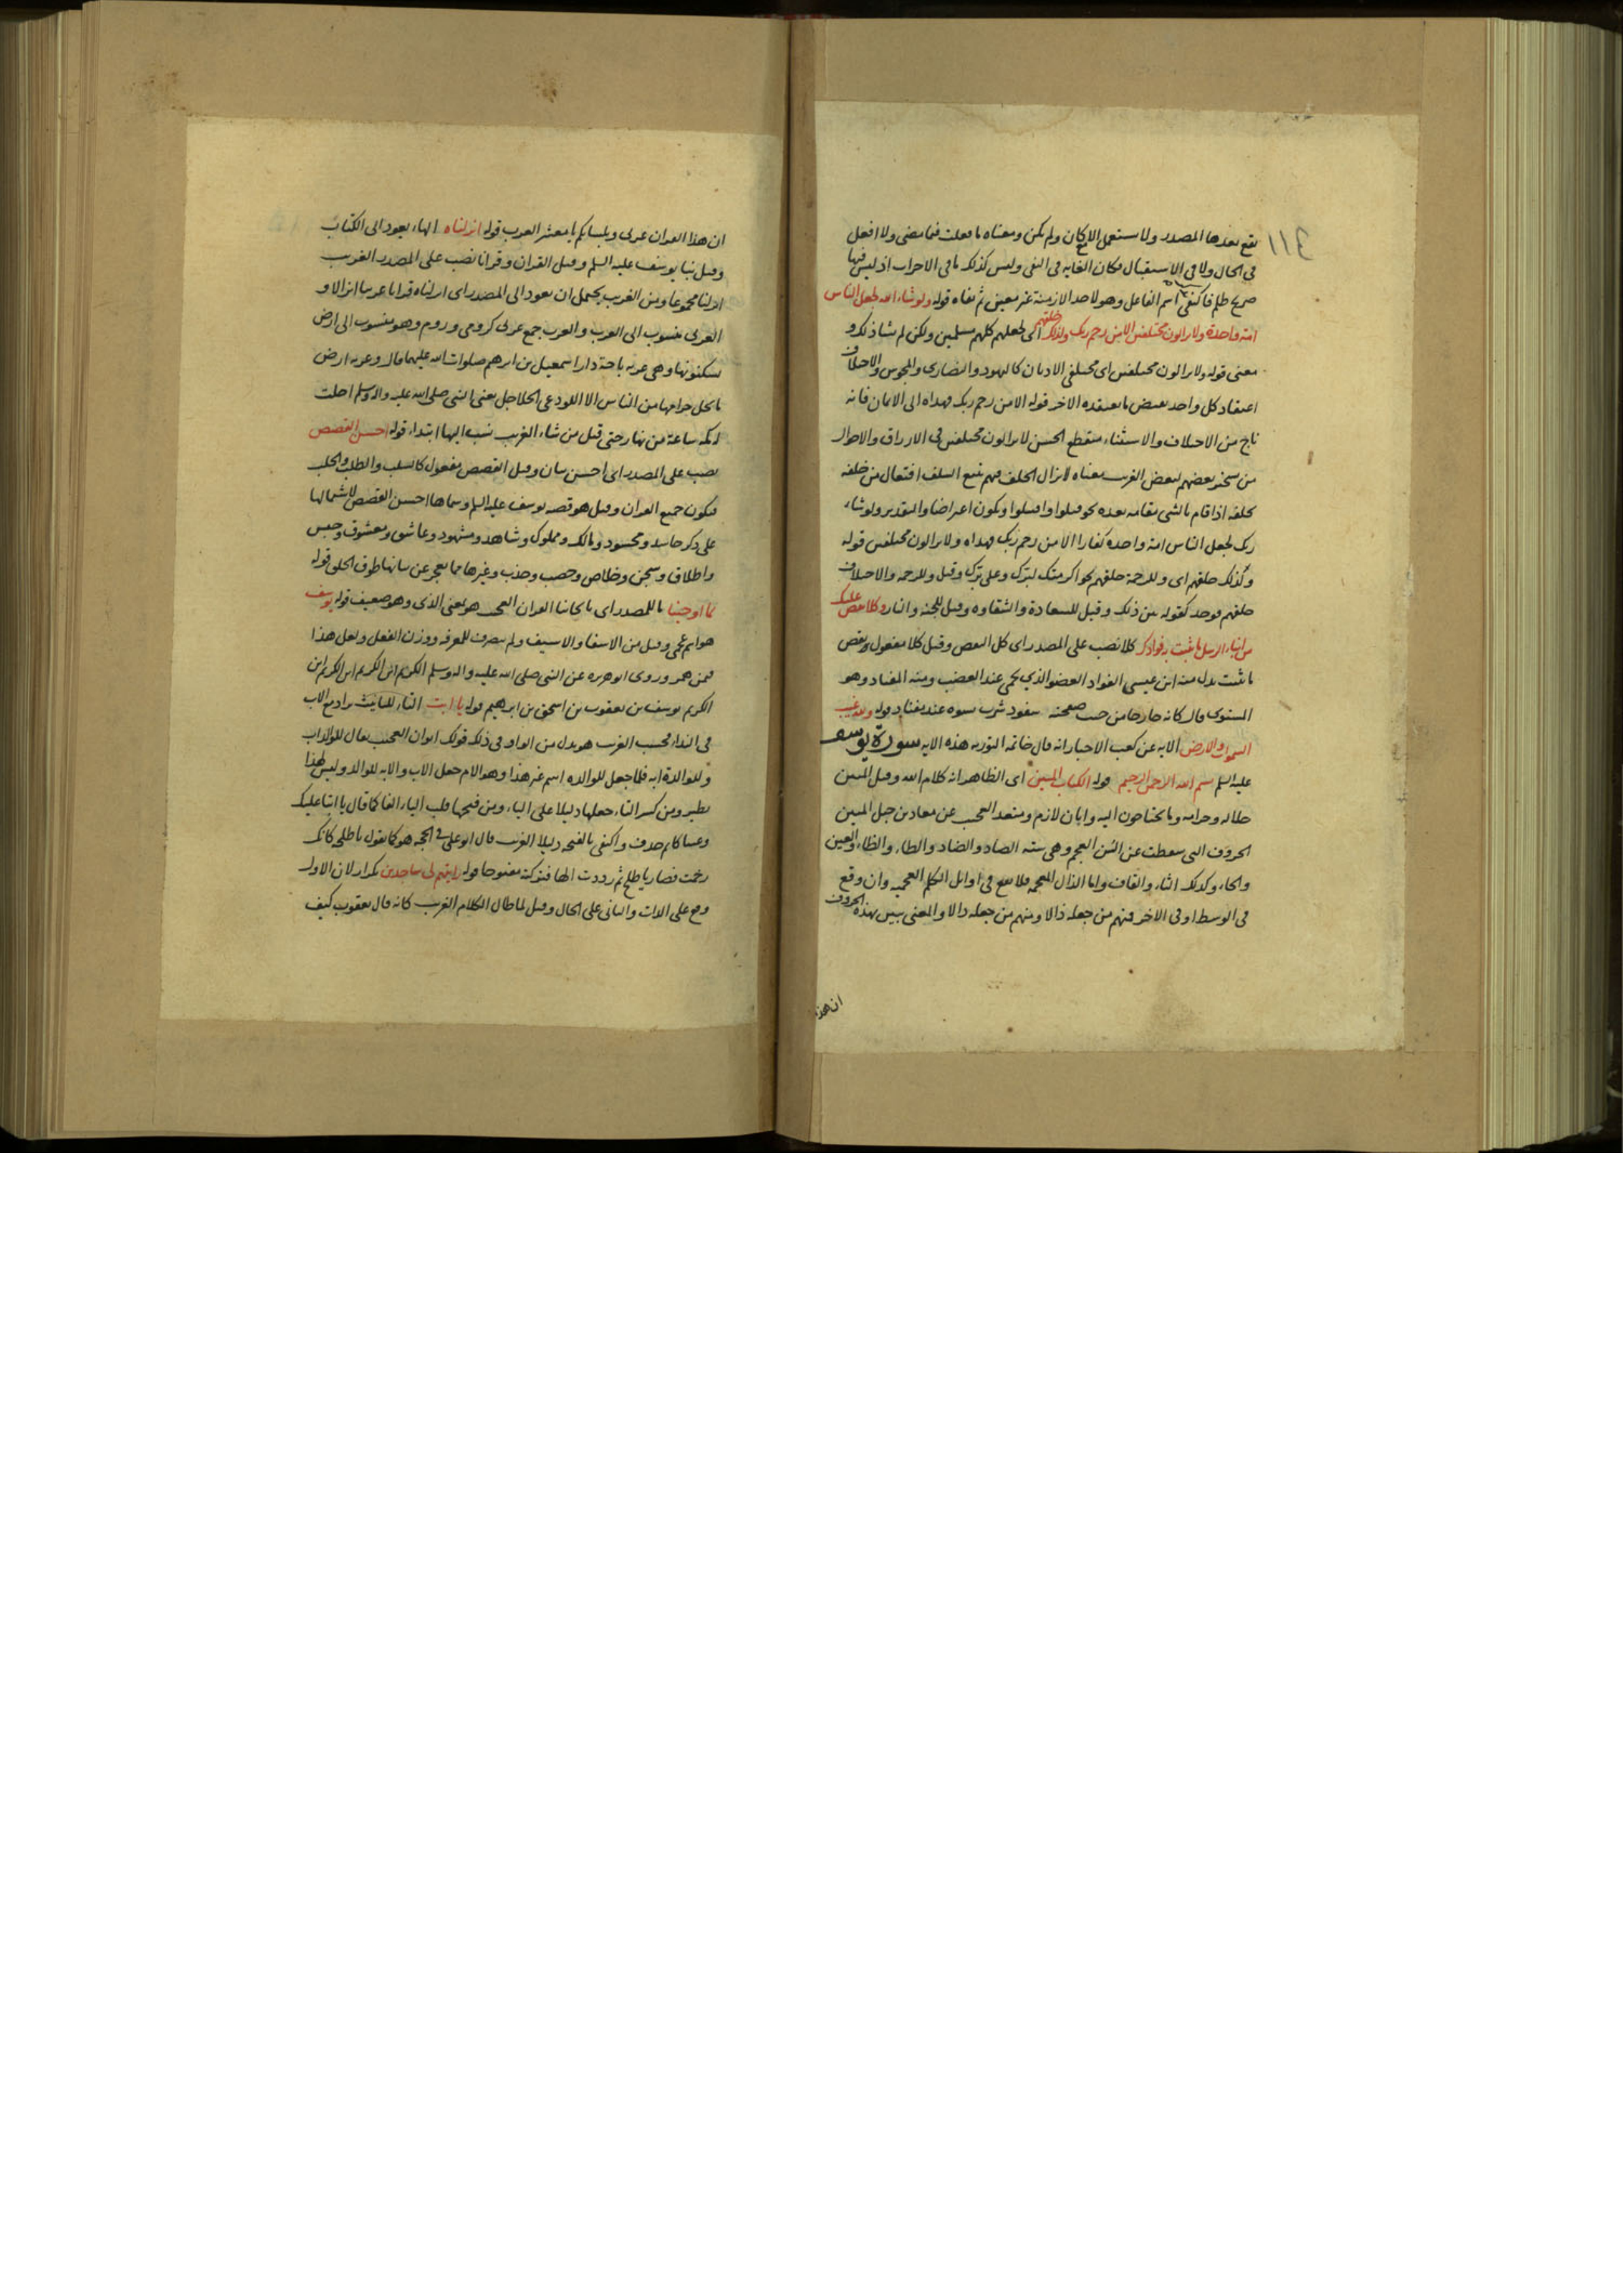 ١١٤
تقع بعدها المصدر ولا يستعمل الا مع كان ولم يكن ومعناه ما فعلت فيما مضى ولا افعل
فى الحال ولا فى الاستقبال فكان الغايه فى النفى وليس كذلك ما فى الاخرات اذ ليس فيها
صريح ظلم فاكتفى باسم الفاعل وهو لاحد الازمنة غير معين ثم نفاه قوله ولو شاء الله لجعل الناس
امة واحدة ولا يزالون مختلفين الا من رحم ربك ولذلك خلقهم اى لجعلهم كلهم مسلمين ولكن لم يشا ذلك و
معنى قوله ولا يزالون مختلفين اى مختلفى الاديان كاليهود والنصارى والمجوس والاختلاف
اعتقاد كل واحد نقيض ما يعتقده الاخر قوله الا من رحم ربك فهداه الى الايمان فانه
ناج من الاختلاف والاستثناء منقطع الحسن لا يزالون مختلفين فى الارزاق والاحوال
من سخر بعضهم لبعض الغريب معناه لا يزال الخلف منهم يتبع السلف افتعال من خلفه
يخلفه اذا قام بالشى مقامه بعده نحو قتلوا واقتتلوا ويكون اعتراضا والتقدير ولو شاء
ربك لجعل الناس امة واحده كفارا الا من رحم ربك فهداه ولا يزالون مختلفين قوله
ولذلك خلقهم اى وللرحمة خلقهم نحو اكرمتك لبرك وعلى برك وقيل وللرحمه والاختلاف
خلقهم فوحد كقوله بين ذلك وقيل للسعادة والشقاوه وقيل للجنه والنار وكلا نقص عليك
من انباء الرسل ما نثبت به فؤادك كلا نصب على المصدر اى كل القصص وقيل كلا مفعول ونقص
ما نثبت بدل منه ابن عيسى الفواد العضو الذي يحمى عند الغضب ومنه المفتاد وهو
المستوى قال كانه خارجا من جنب صفحته سفود شرب نسوه عند مفتاد قوله ولله غيب
السموات والارض الايه عن كعب الاحبار انه قال خاتمه التوريه هذه الايه سورة يوسف
عليه السلم بسم الله الرحمن الرحيم قوله الكتاب المبين اى الظاهر انه كلام الله وقيل المبين
حلاله وحرامه وما يحتاجون اليه وابان لازم ومتعد العجيب عن معاذ بن جبل المبين
الحروف التى سقطت عن السن العجم وهى سته الصاد والضاد والطاء والظاء والعين
والحاء وكذلك الثاء والقاف واما الذال المعجمه فلا تقع فى اوايل الكلم العجميه وان وقع
فى الوسط او فى الاخر فمنهم من جعله ذالا ومنهم من جعله دالا والمعنى يبين بهذه الحروف
ان هذا
ان هذا القران عربى وبلسانكم يا معشر العرب قوله انزلناه الهاء يعود الى الكتاب
وقيل نبا يوسف عليه السلم وقيل القران وقرانا نصب على المصدر الغريب
انزلنا مجموعا ومن الغريب يحتمل ان يعود الى المصدر اى انزلناه قرانا عربيا انزالا و
العربى منسوب الى العرب والعرب جمع عربى كرومى وروم وهو منسوب الى ارض
يسكنونها وهى عربه باحة دار اسمعيل بن ابرهيم صلوات الله عليهما قال وعربه ارض
ما يحل حرامها من الناس الا اللوذعى الحلاحل يعنى النبى صلى الله عليه واله وسلم احلت
له مكه ساعة من نهار حتى قيل من شاء الغريب نسب ابها ابتداء قوله احسن القصص
نصب على المصدر اى احسن بيان وقيل القصص مفعول كالسلب والطلب والحلب
فيكون جميع القران وقيل هو قصه يوسف عليه السلم وسماها احسن القصص لاشتمالها
على ذكر حاسد ومحسود ومالك ومملوك وشاهد ومشهود وعاشق ومعشوق وحبس
واطلاق وسجن وخلاص وخصب وجذب وغيرها مما يعجز عن بيانها طوق الخلق قوله
بما اوحينا ما للمصدر اى بايحائنا القران العجيب هو بمعنى الذى وهو ضعيف قوله يوسف
هو اسم عجمى وقيل من الاسف والاسيف ولم ينصرف للمعرفه ووزن الفعل ولعل هذا
فيمن همز وروى ابو هريره عن النبى صلى الله عليه واله وسلم الكريم ابن الكريم ابن الكريم ابن
الكريم يوسف بن يعقوب بن اسحق بن ابراهيم قوله يا ابت التاء للتانيث يزاد مع الاب
فى النداء فحسب الغريب هو بدل من الواو فى ذلك قولك ابوان العجيب يقال للوالد اب
وللوالدة ابه فلما جعل للوالده اسم غير هذا وهو الام جعل الاب والابه للوالد وليس لهذا
نظير ومن كسر التاء جعلها دليلا على الياء ومن فتحها قلب الياء الفا كما قال يا ابتا عليك
وعساكا ثم حذف واكتفى بالفتحه دليلا الغريب قال ابو على فى الحجه هو كما تقول يا طلحه كانك
رخمت فصار يا طلح ثم رددت الها فتركته مفتوحا قوله رايتهم لى ساجدين تكرار لان الاول
وقع على الذات والثانى على الحال وقيل لما طال الكلام الغريب كانه قال يعقوب كيف